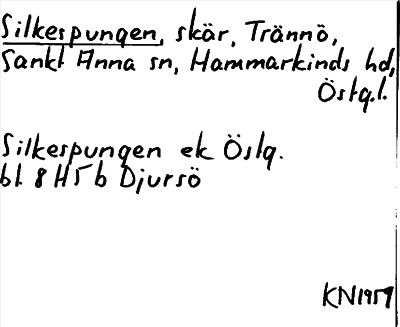 Silkespungen, skär, Trännö,
Sankt Anna sn, Hammarkinds hd,
Östg.l.
Silkespungen ek Östg.
bl 8 H 5 b Djursö
KN 1959